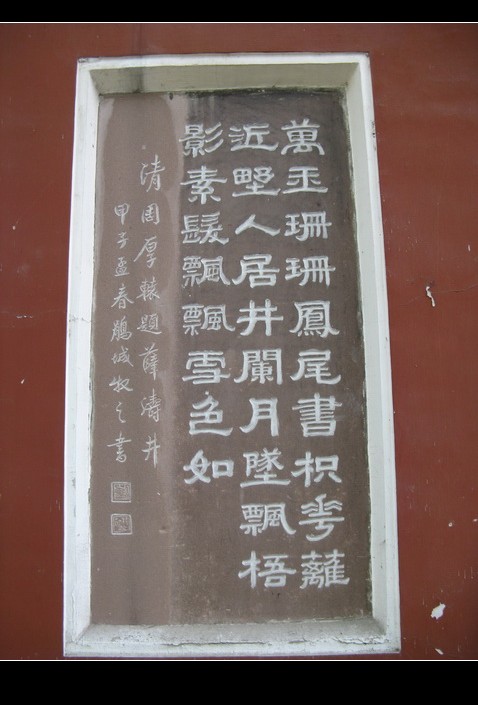 萬玉珊珊鳳尾書枳花蘺
近墅人居井闌月墜飄梧
影素髮飄飄雪色如
清周厚轅題薛濤井
甲子孟春鵬城牧之書